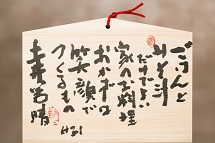 ごはんと
みそ汁
だけでよい
家のお料理
おかずは
笑顔で
つくるもの
土井善晴